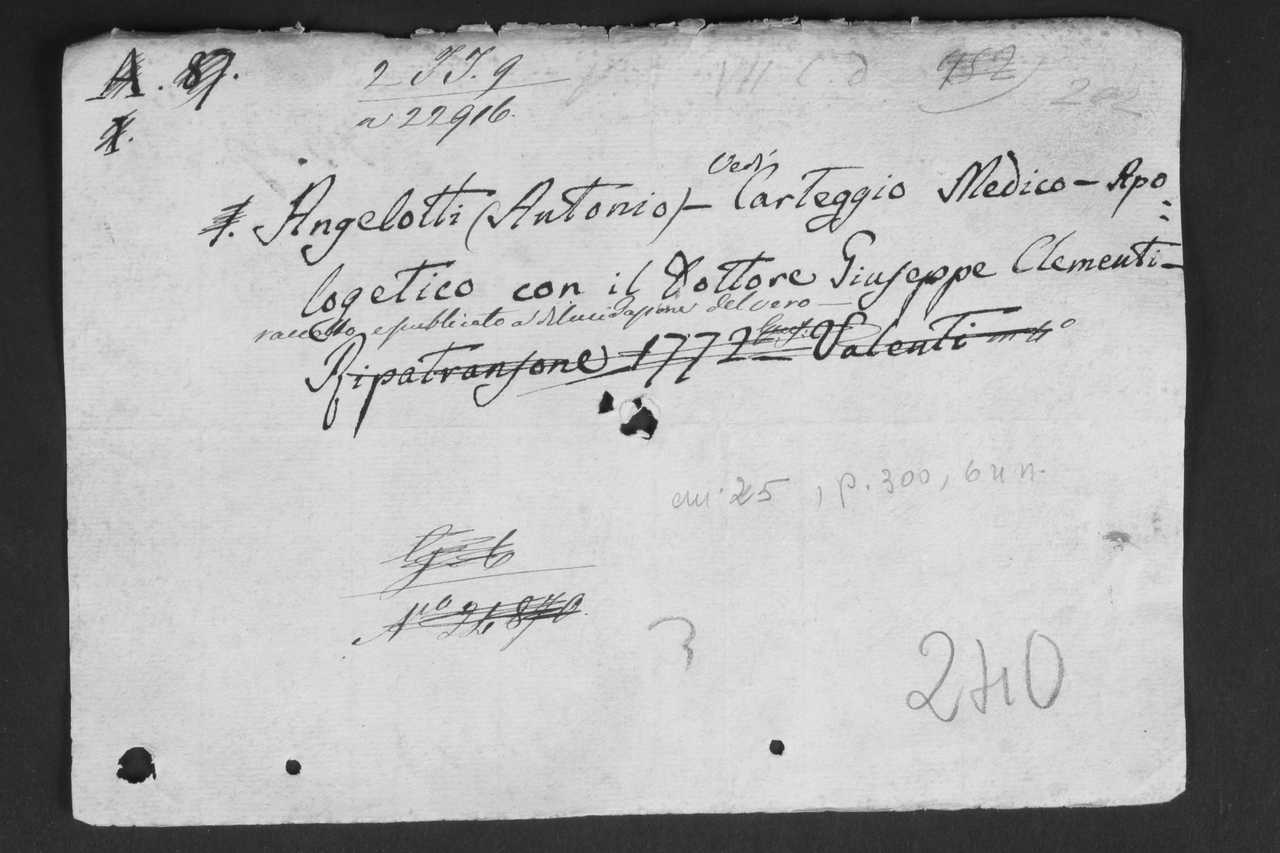 A. 89.
1.
2 JJ. 9
a 22916.
VII C d 952
202
1. Angelotti (Antonio) – Vedi Carteggio Medico – Apo
logetico con il Dottore Giuseppe Clementi –
raccolto, e publicato a dilucidazione del vero –
Ripatransone 1772 – Valenti in 4°
cm. 25, p. 300, 6 n n.
N.° 24,870.
3
240